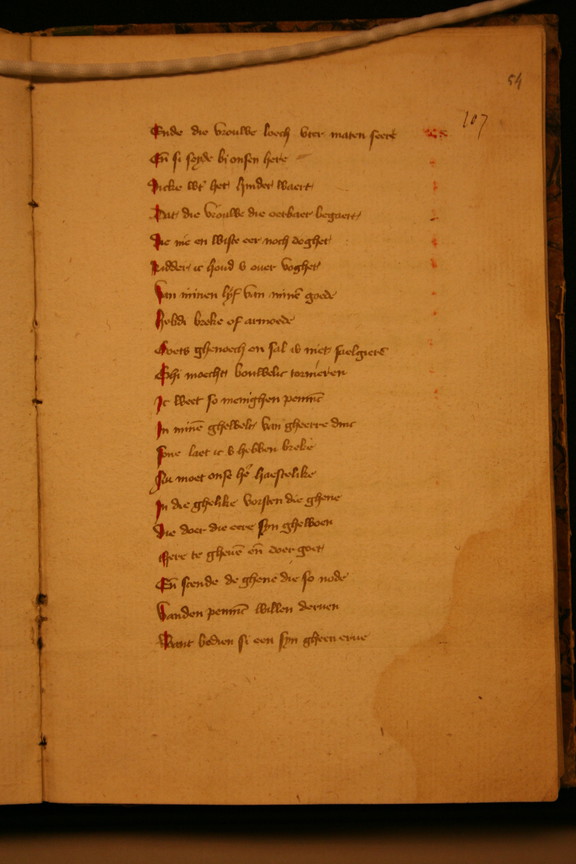 54
107
Ende die vrouwe loech vter maten seere
En̄ si seyde bi onsen here
Dicke wt het hinder waert
Dat die vrouwe die oerbaer begaert
Die nie en wiste eer noch doghet
Ridder ic houd v ouer voghet
Van minen lyf van minē goede
Hebdi breke of armoede
Goets ghenoech en sal v niet faelgierē
Ghi moecht bouwelic tornieren
Ic weet so menighen pennīc
In minē ghewelt van gheerre dinc
Sone laet ic v hebben breke
Nu moet onse he haestelike
In die ghelike vorsten die ghene
Die doer die eere syn ghewoen
Mere te gheuē en̄ doer goet
En̄ scende de ghene die so node
Vanden pennīc willen deruen
Want bedien si een syn gheen erue